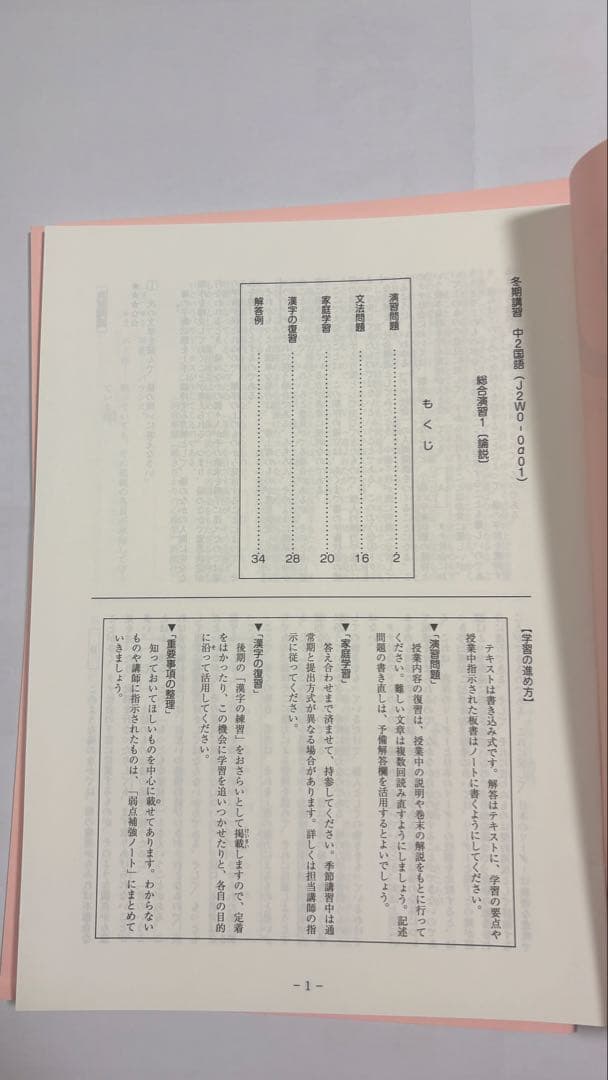 冬期講習 中2国語(J2W0-0a01)
総合演習1〔論説〕
もくじ
演習問題……2
文法問題……16
家庭学習……20
漢字の復習……28
解答例……34
【学習の進め方】
テキストは書き込み式です。解答はテキストに、学習の要点や
授業中指示された板書はノートに書くようにしてください。
▼「演習問題」
授業内容の復習は、授業中の説明や巻末の解説をもとに行って
ください。難しい文章は複数回読み直すようにしましょう。記述
問題の書き直しは、予備解答欄を活用するとよいでしょう。
▼「家庭学習」
答え合わせまで済ませて、持参してください。季節講習中は通
常期と提出方式が異なる場合があります。詳しくは担当講師の指
示に従ってください。
▼「漢字の復習」
後期の「漢字の練習」をおさらいとして掲載しますので、定着
をはかったり、この機会に学習を追いつかせたりと、各自の目的
に沿って活用してください。
▼「重要事項の整理」
知っておいてほしいものを中心に載せてあります。わからない
ものや講師に指示されたものは、「弱点補強ノート」にまとめて
いきましょう。
-1-